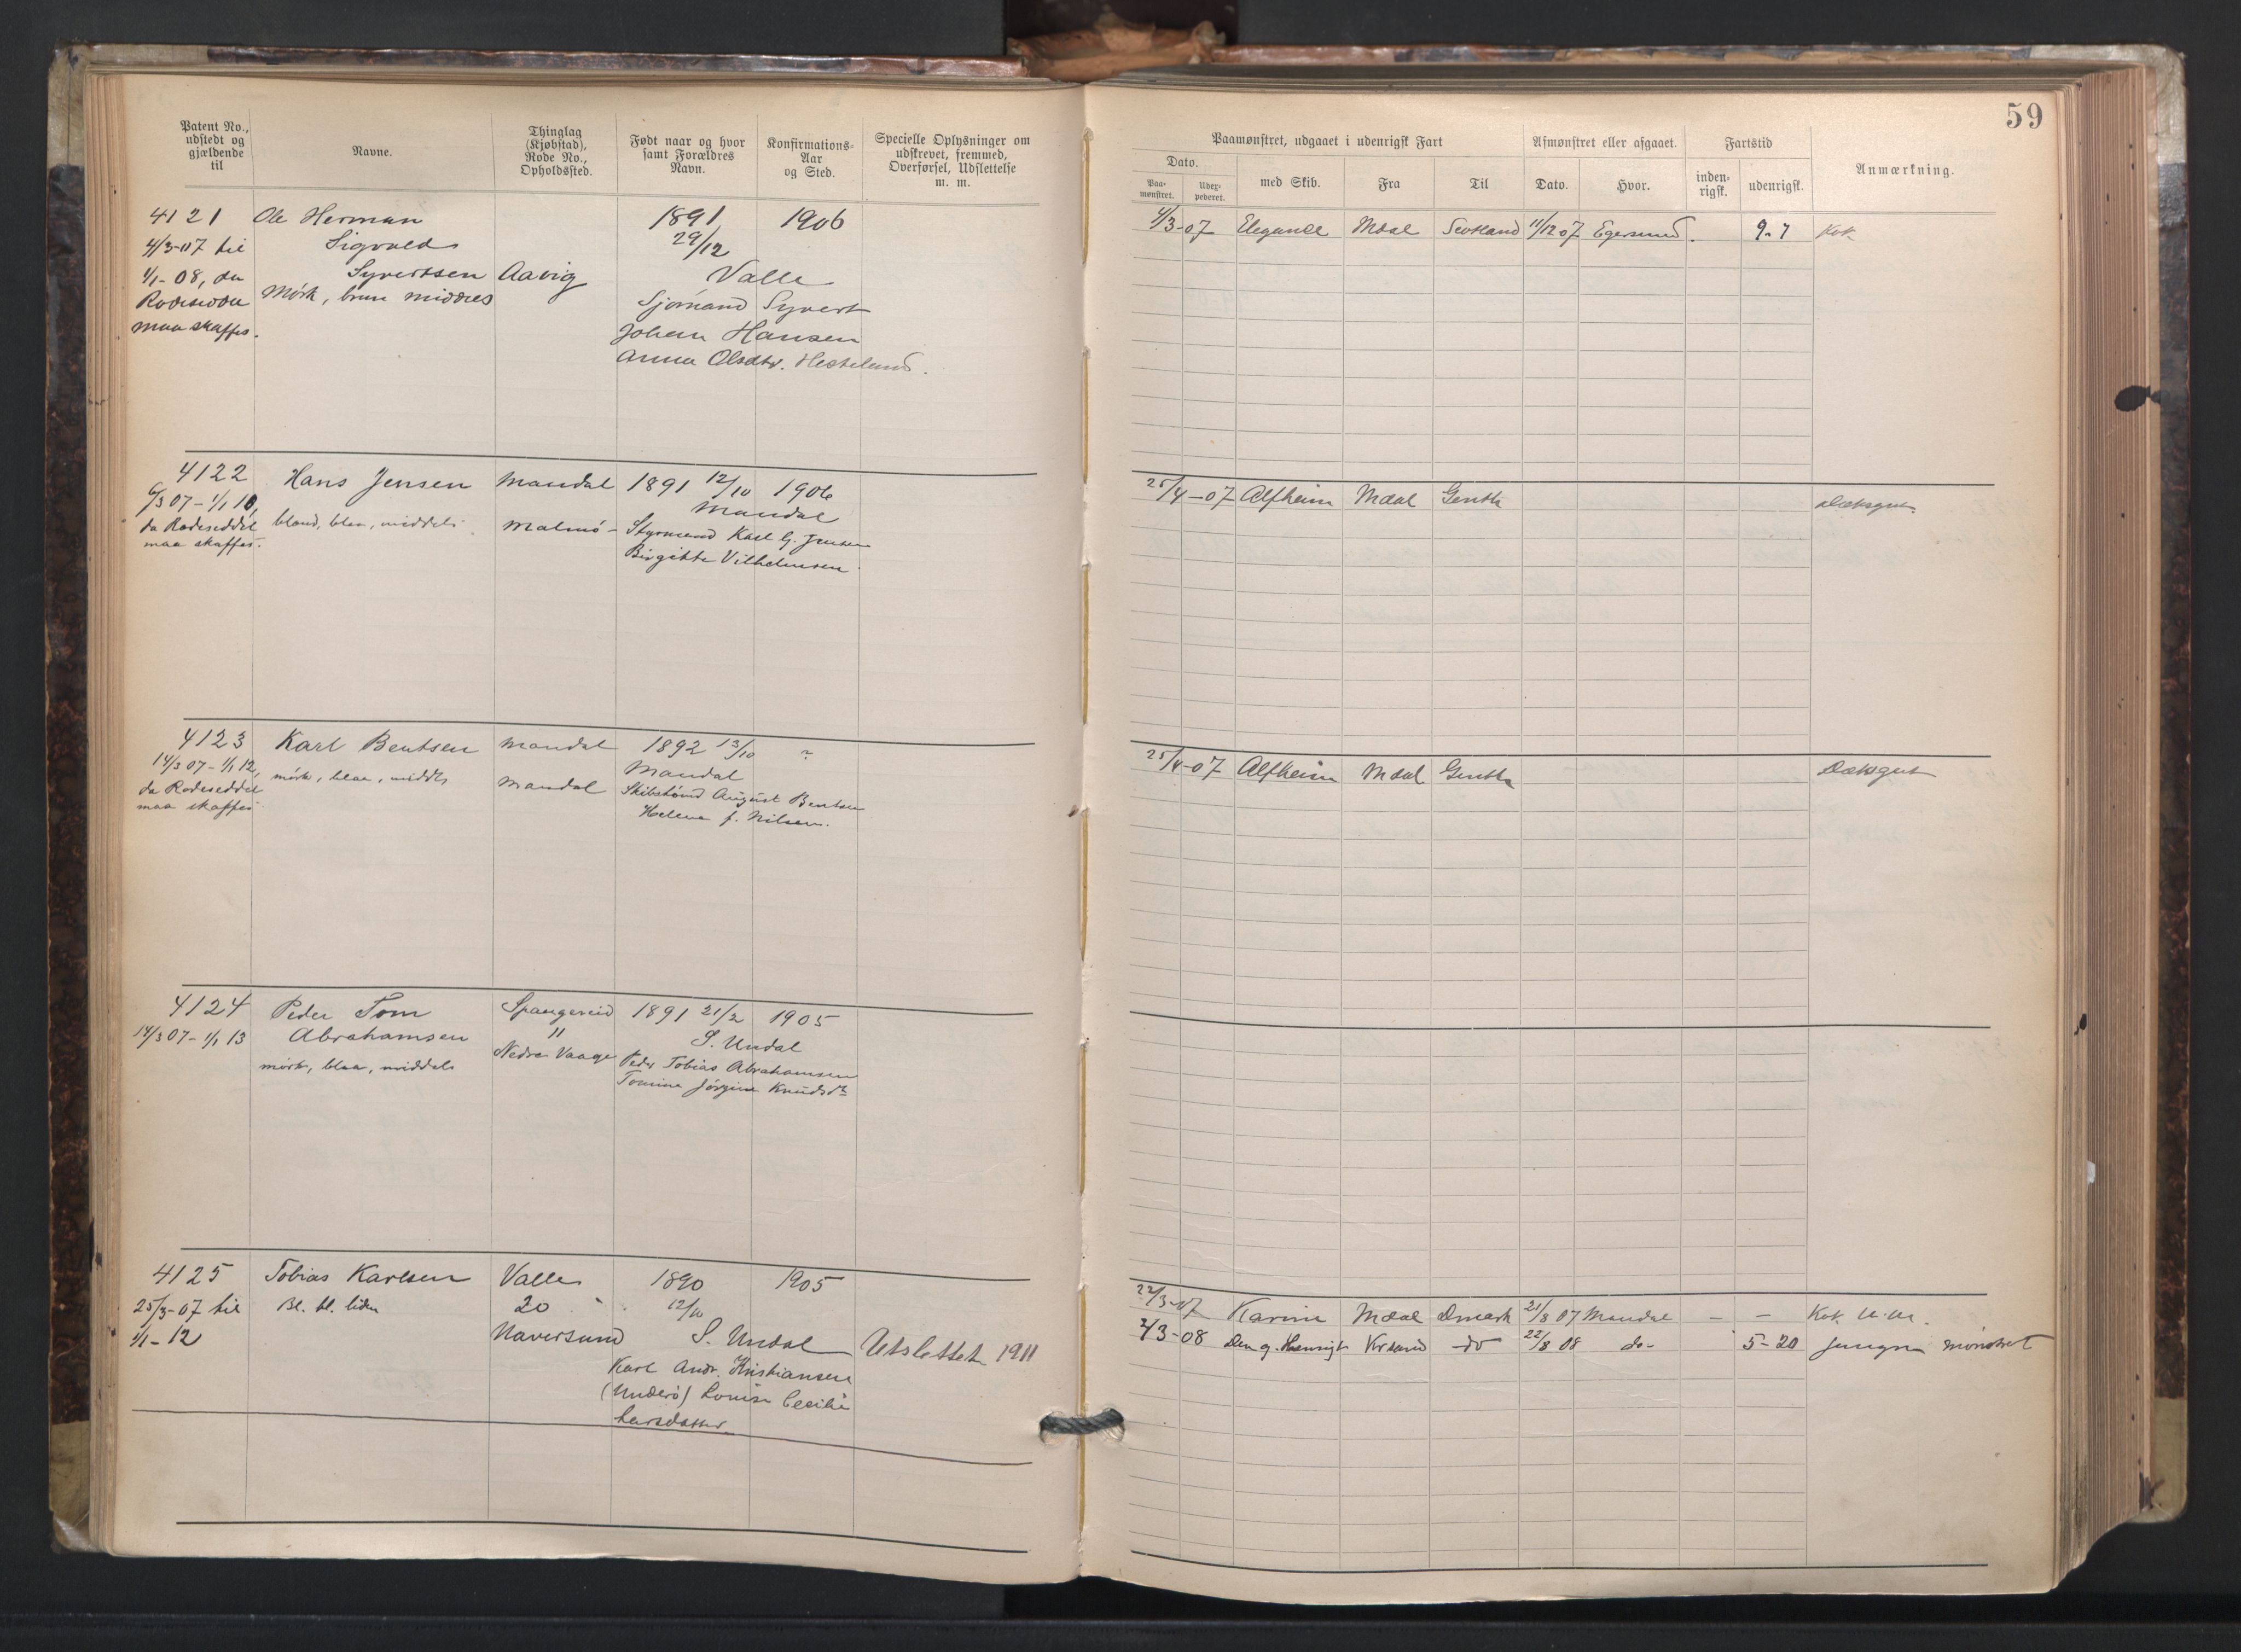 59
Patent No., udstedt og gjældende til
Navne.
Thinglag (Kjøbstad), Rode No., Opholdssted.
Født naar og hvor samt Forældres Navn.
Konfirmations-Aar og Sted.
Specielle Oplysninger om udskrevet, fremmed, Overførsel, Udslettelse m. m.
Paamønstret, udgaaet i udenrigsk Fart
Afmønstret eller afgaaet.
Fartstid
Anmærkning.
Dato.
Paa-mønstret.
med Skib.
Fra
Til
Dato.
Hvor.
inden-rigsk.
udenrigsk.
4121 Ole Herman 1891 1906
4/3-07 til Sigvald 29/12
1/1-08, da Syvertsen Aavig Valle
Rodeseddel Mørk, brune middels Sjømand Syvert
maa skaffes. Johan Hansen
Anna Olsdtr. Hesteland.
4/3-07 Elegance Mdal Scotland 11/12 07 Egersund. 9-7 Kok
4122 Hans Jensen Mandal 1891 12/10 1906
6/3 07-1/1 10, Mandal
da Rodeseddel blond, blaa, middels Malmø- Styrmand Karl G. Jensen
maa skaffes. Birgitte Vilhelmsen
25/4-07 Alfheim Mdal Genth Dæksgut
4123 Karl Bentsen Mandal 1892 13/10 ?
14/3 07-1/1 12, mørk, blaa, middls Mandal
da Rodeseddel Mandal August Bentsen
maa skaffes Helene f. Nilsen.
25/4-07 Alfheim Mdal Genth Dæksgut
4124 Peder Tom Spangereid 1891 21/2 1905
14/3 07-1/1 13 Abrahamsen " S. Undal
mørk, blaa, middels Nedre Vaage Peder Tobias Abrahamsen
Tomine Jørgine Knudsdr
4125 Tobias Karlsen Valle 1890 1905
25/3-07 til Bl. bl. liden 20 12/10
1/1-12 Naversund S. Undal Utslettet 1911
Karl Andr. Kristiansen
(Underø) Lovise Cecilie
Larsdatter
22/3-07 Karine Mdal Dmark 21/8 07 Mandal - - Kok
2/3-08 Den g. Krsand do 22/8 08 do- 5-20 Jungm mønstret